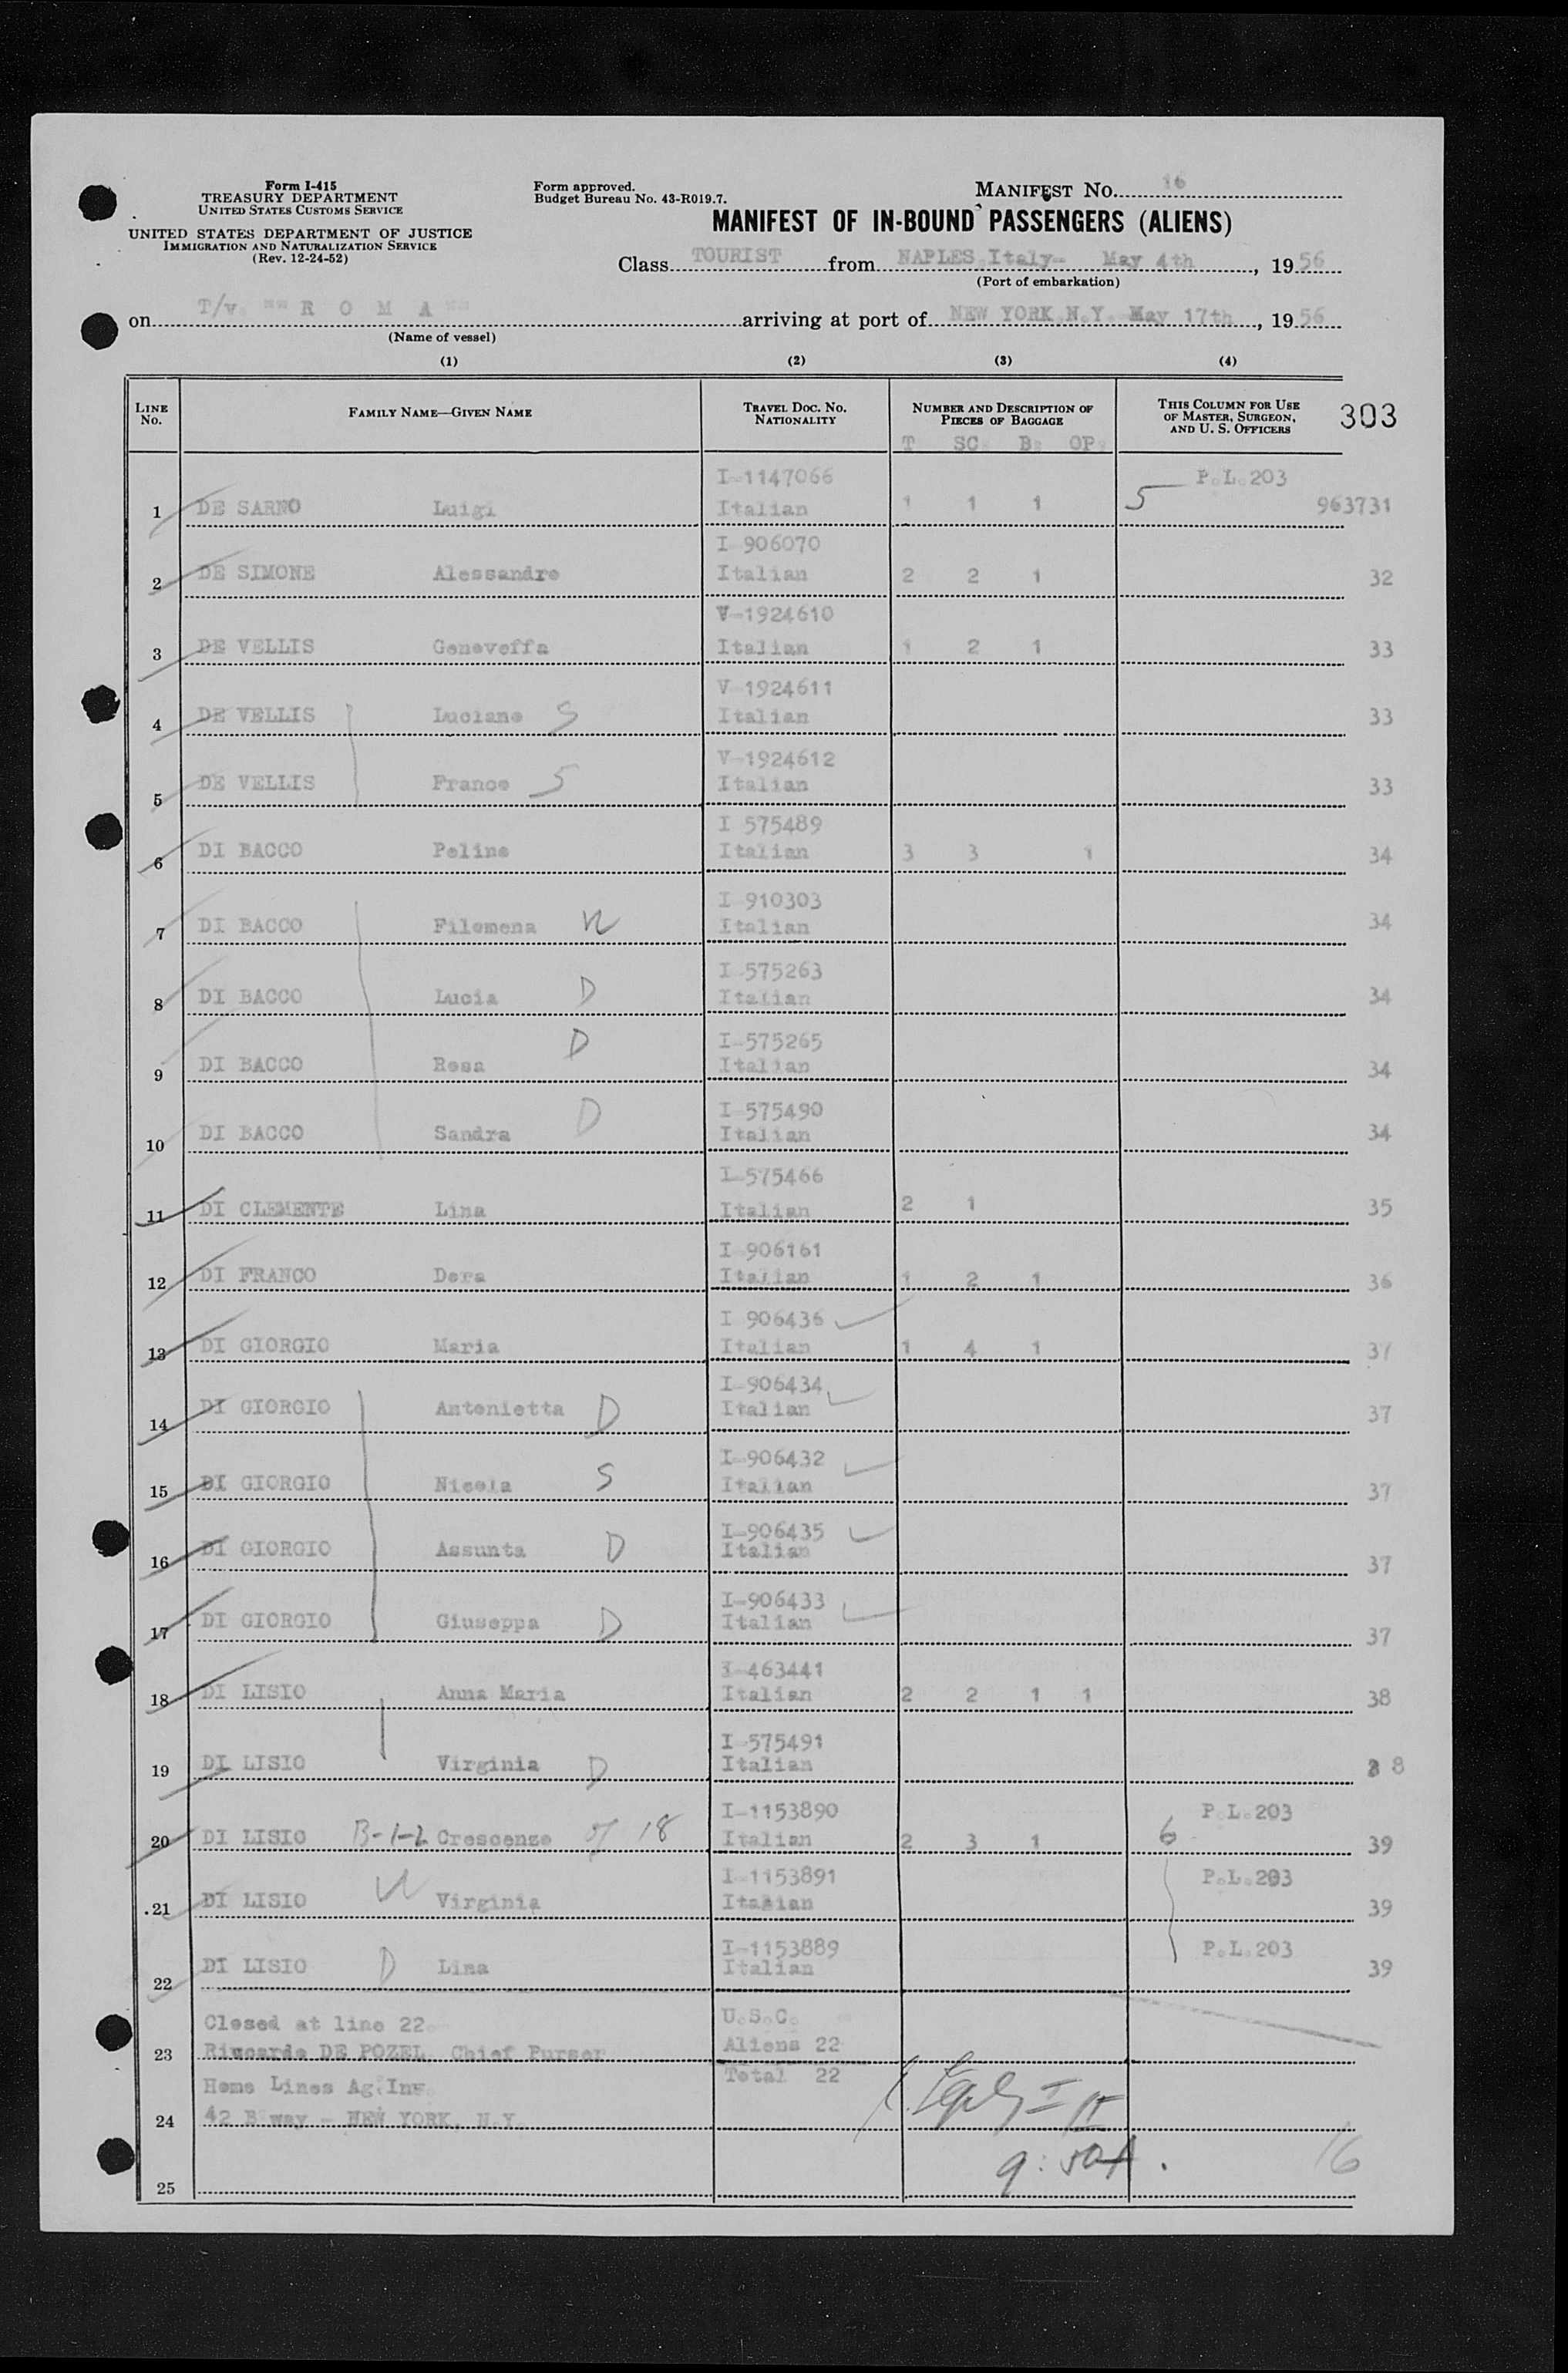 Form I-415
TREASURY DEPARTMENT
UNITED STATES CUSTOMS SERVICE
UNITED STATES DEPARTMENT OF JUSTICE
IMMIGRATION AND NATURALIZATION SERVICE
(Rev. 12-24-52)
Form approved.
Budget Bureau No. 43-R019.7.
MANIFEST NO. 16
MANIFEST OF IN-BOUND PASSENGERS (ALIENS)
Class TOURIST from NAPLES, Italy- May 4th, 1956
(Port of embarkation)
on T/v. "" R O M A "" arriving at port of NEW YORK, N.Y. May 17th, 1956
(Name of vessel)
(1) (2) (3) (4)
LINE NO. FAMILY NAME—GIVEN NAME TRAVEL DOC. NO. NATIONALITY NUMBER AND DESCRIPTION OF PIECES OF BAGGAGE THIS COLUMN FOR USE OF MASTER, SURGEON, AND U. S. OFFICERS 303
T SC: B: OP:
I-1147066 P.L.203
1 DE SARNO Luigi Italian 1 1 1 5 963731
I-906070
2 DE SIMONE Alessandro Italian 2 2 1 32
V-1924610
3 DE VELLIS Genoveffa Italian 1 2 1 33
V-1924611
4 DE VELLIS Luciano S Italian 33
V-1924612
5 DE VELLIS Franco S Italian 33
I 575489
6 DI BACCO Peline Italian 3 3 1 34
I-910303
7 DI BACCO Filomena W Italian 34
I-575263
8 DI BACCO Lucia D Italian 34
I-575265
9 DI BACCO Rosa D Italian 34
I-575490
10 DI BACCO Sandra D Italian 34
I-575466
11 DI CLEMENTE Lina Italian 2 1 35
I-906161
12 DI FRANCO Dora Italian 1 2 1 36
I 906436
13 DI GIORGIO Maria Italian 1 4 1 37
I-906434
14 DI GIORGIO Antonietta D Italian 37
I-906432
15 DI GIORGIO Nicola S Italian 37
I-906435
16 DI GIORGIO Assunta D Italian 37
I-906433
17 DI GIORGIO Giuseppa D Italian 37
I-463441
18 DI LISIO Anna Maria Italian 2 2 1 1 38
I-575491
19 DI LISIO Virginia D Italian 38
I-1153890 P.L.203
20 DI LISIO B-1-2 Crescenzo of 18 Italian 2 3 1 6 39
I-1153891 P.L.203
21 DI LISIO W Virginia Italian 39
I-1153889 P.L.203
22 DI LISIO D Lina Italian 39
Closed at line 22. U.S.C.
23 DE POZEL Chief Purser Aliens 22
Home Lines Ag. Total 22
24 42 B'way - NEW YORK, N.Y.
9:50A. 16
25